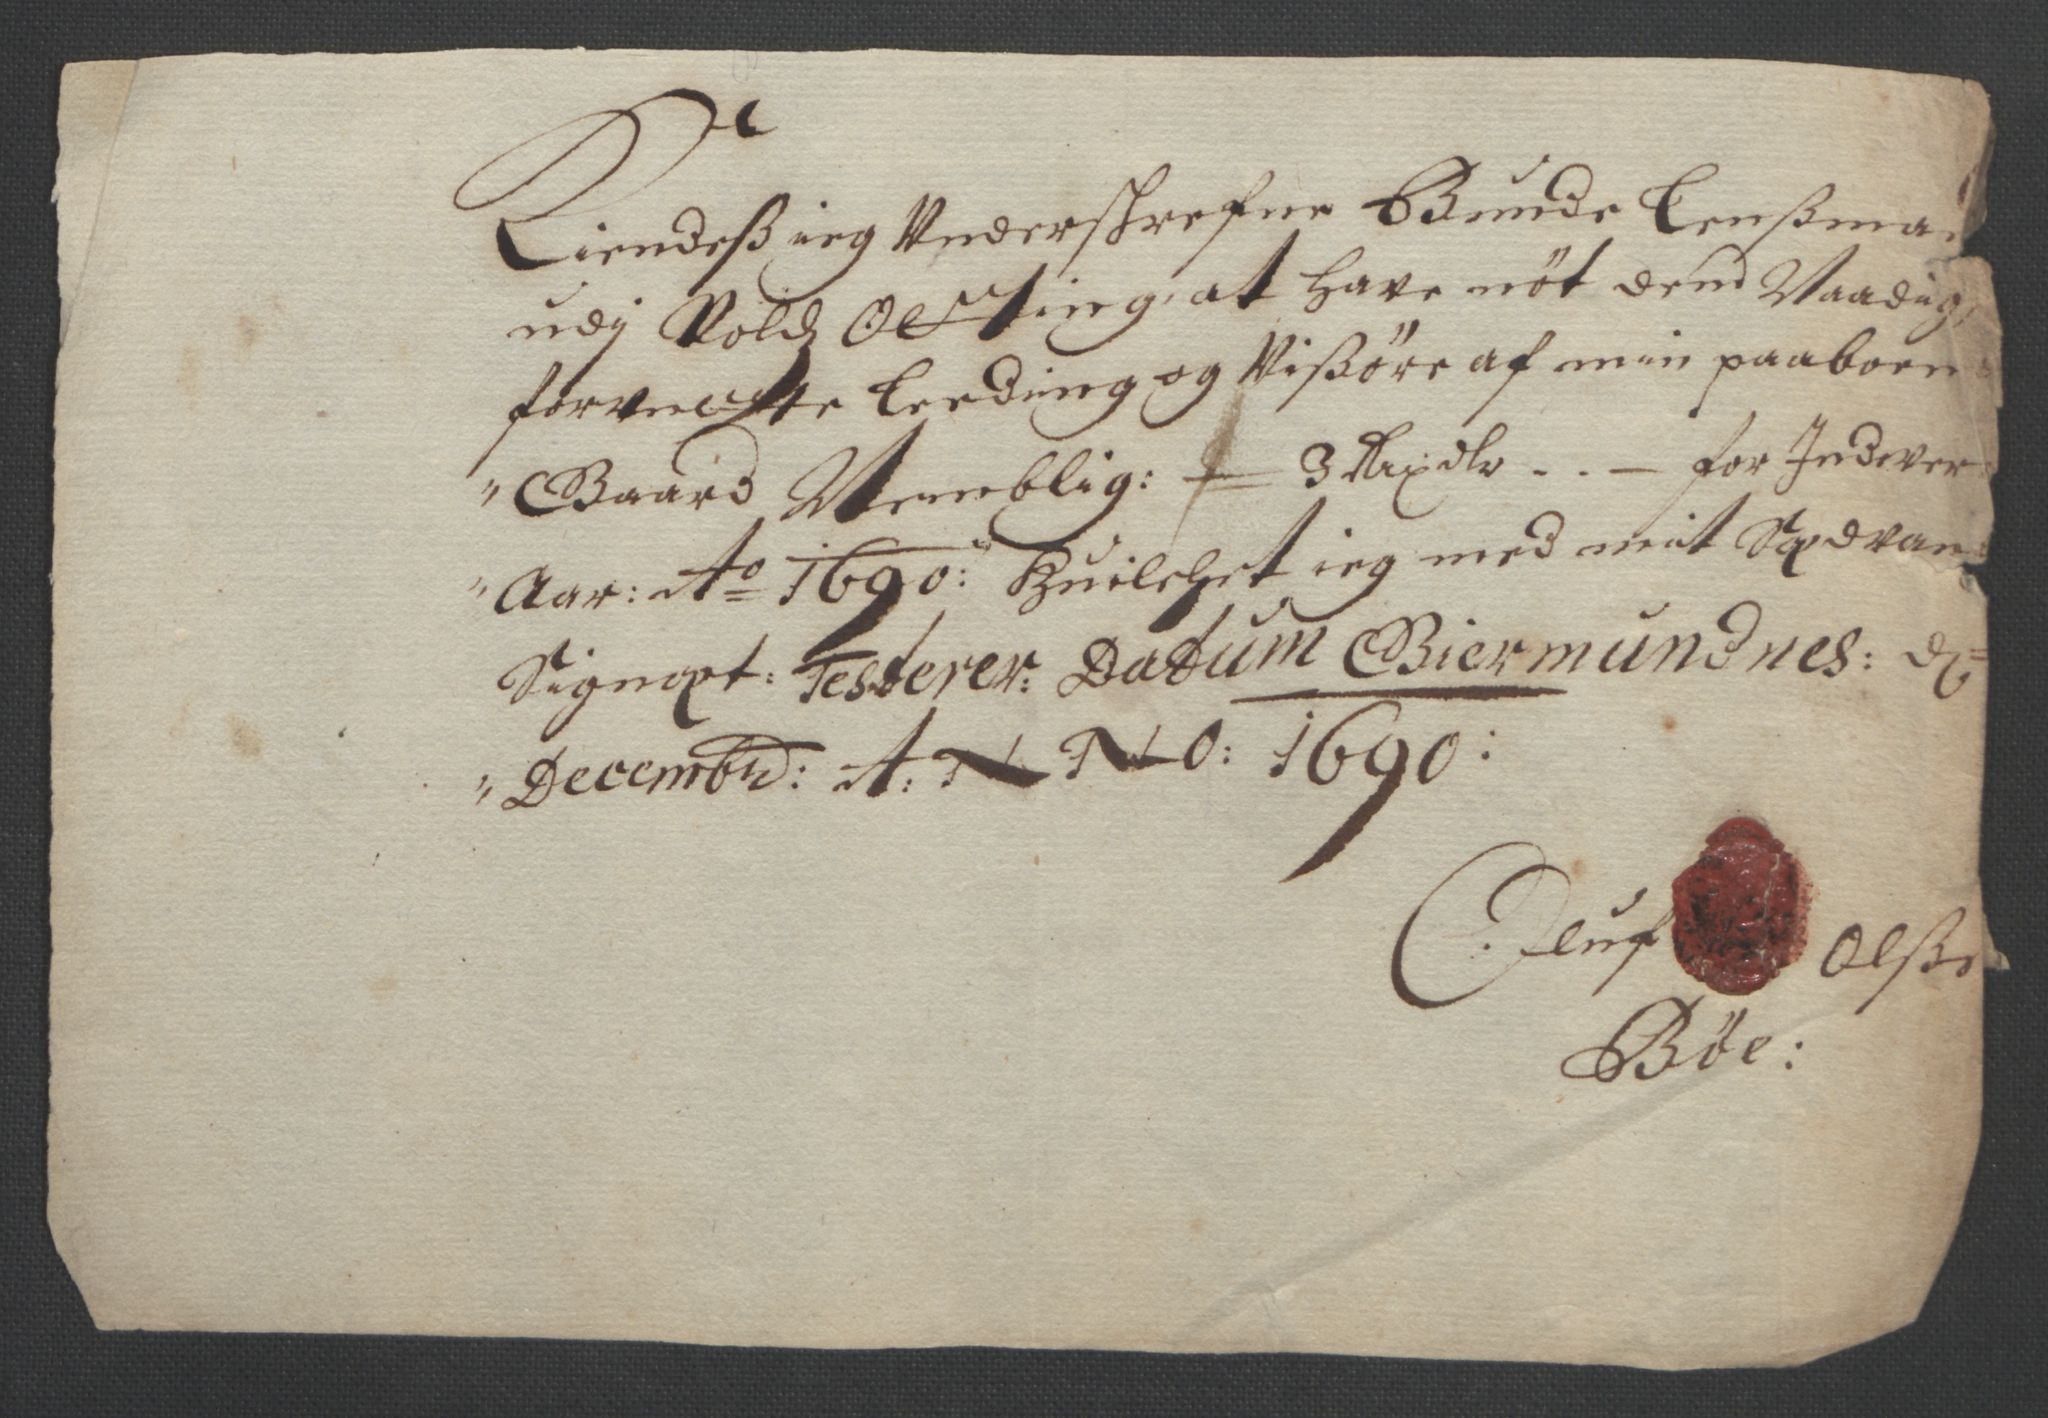 Kiendeß ieg Underschrefne Bunde Lenßma
udj Vold Otting, at have nöt dend Naadig,
forundte Leeding og Vißöre af min paaboen
Gaard Nemblig: 3 Rixdlr . . — for Indever
Aar: Ao 1690: Huilchet ieg med mit Sædvan
Signæt: Testerer: Datum Biermundnes: d
Decembr: A: N N O: 1690:
Oluf Olß
Böe: